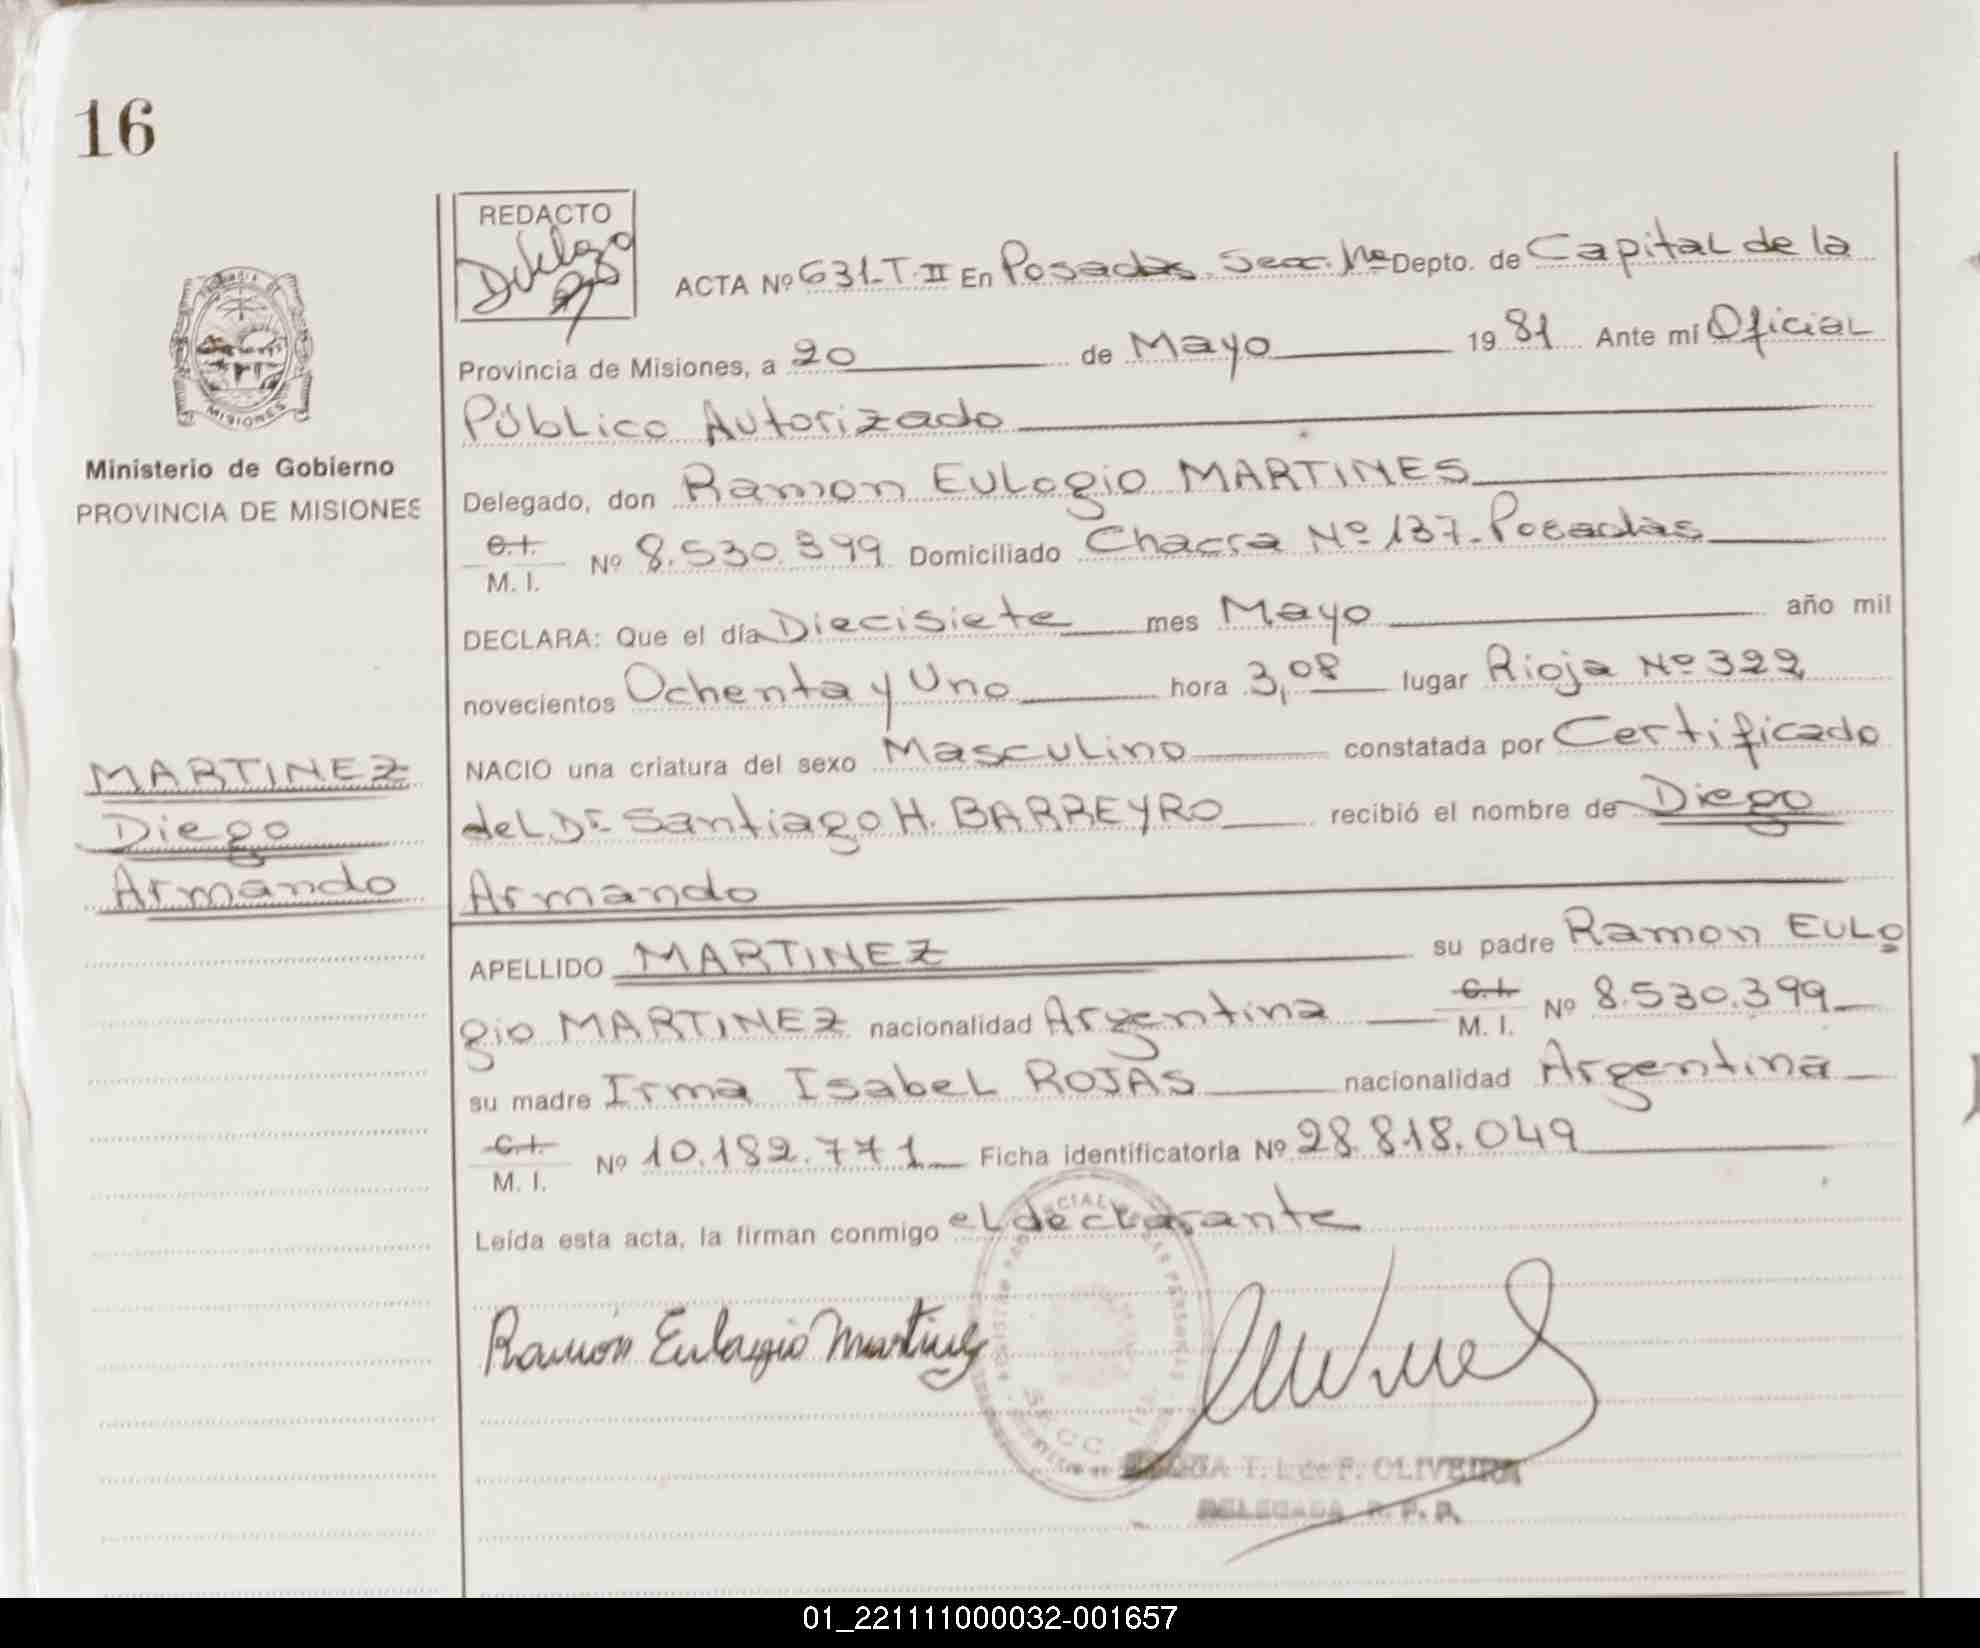 16
REDACTO
ACTA Nº 631-T-II En Posadas Secc. 1ª Depto. de Capital de la
Provincia de Misiones, a 20 de Mayo 1981 Ante mí Oficial
Público Autorizado
Ministerio de Gobierno
PROVINCIA DE MISIONES
MISIONES
Delegado, don Ramon Eulogio MARTINES
C.I. M. I. Nº 8.530.399 Domiciliado Chacra Nº 137-Posadas
DECLARA: Que el día Diecisiete mes Mayo año mil
novecientos Ochenta y Uno hora 3,08 lugar Rioja Nº 322
NACIO una criatura del sexo Masculino constatada por Certificado
MARTINEZ
Diego
Armando
del Dr Santiago H. BARREYRO recibió el nombre de Diego
Armando
APELLIDO MARTINEZ su padre Ramon Eulo
gio MARTINEZ nacionalidad Argentina C.I. M. I. Nº 8.530.399
su madre Irma Isabel ROJAS nacionalidad Argentina
C.I. M. I. Nº 10.182.771 Ficha identificatoria Nº 28.818.049
Leída esta acta, la firman conmigo el declarante
Ramón Eulogio Martinez
T. L de F. OLIVEIRA
DELEGADA R. P. P.
01_221111000032-001657